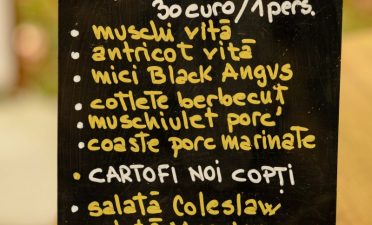 30 euro/1 pers.
• muschi vită
• antricot vită
• mici Black Angus
• cotlete berbecuț
• muschiuleț porc
• coaste porc marinate
• CARTOFI NOI COPȚI
• salată Coleslaw